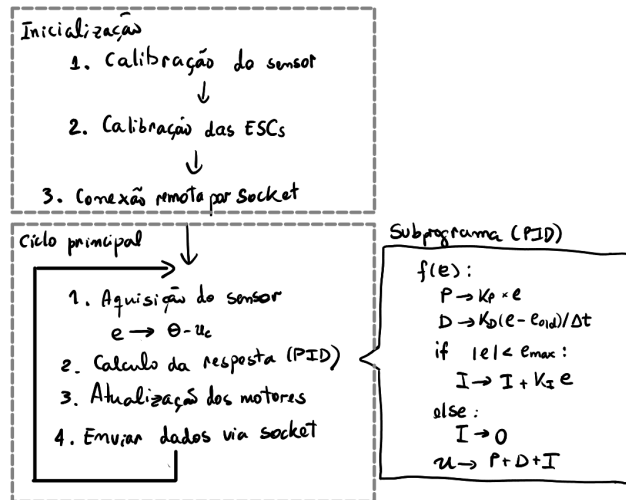 Inicialização
1. Calibração do sensor
↓
2. Calibração das ESCs
↓
3. Conexão remota por Socket
↓
Ciclo principal
1. Aquisição do sensor
e → θ - u_c
2. Calculo da resposta (PID)
3. Atualização dos motores
4. Enviar dados via socket
Subprograma (PID)
f(e):
P → K_P × e
D → K_D(e - e_old)/Δt
if |e| < e_max:
I → I + K_I e
else:
I → 0
u → P + D + I